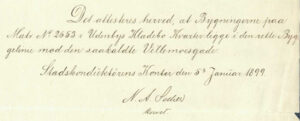 Det attesteres herved, at Bygningerne paa
Matr. Nº 2553 i Udenbys Klædebo Kvarter ligge i den rette Byg
gelinie mod den saakaldte Vellemoesgade.
Stadskonduktørens Kontor den 5te Januar 1899.
N. A.